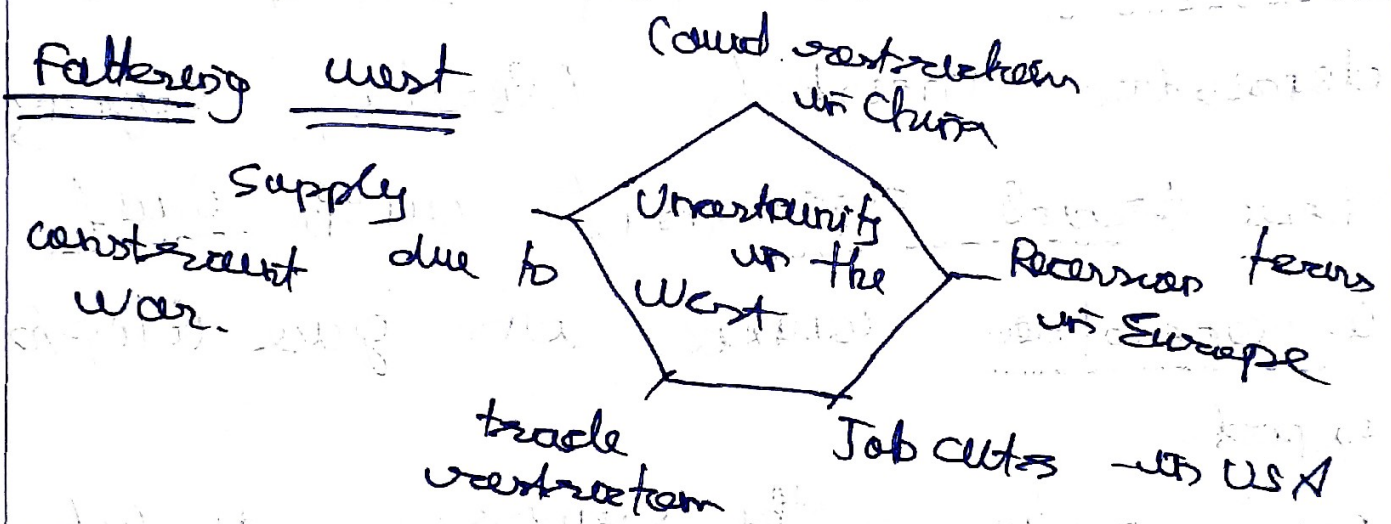 Faltering west
Covid restrictions
in China
Supply
constraint due to
war.
Uncertainity
in the
West
Recession fears
in Europe
trade
restriction
Job cuts in USA